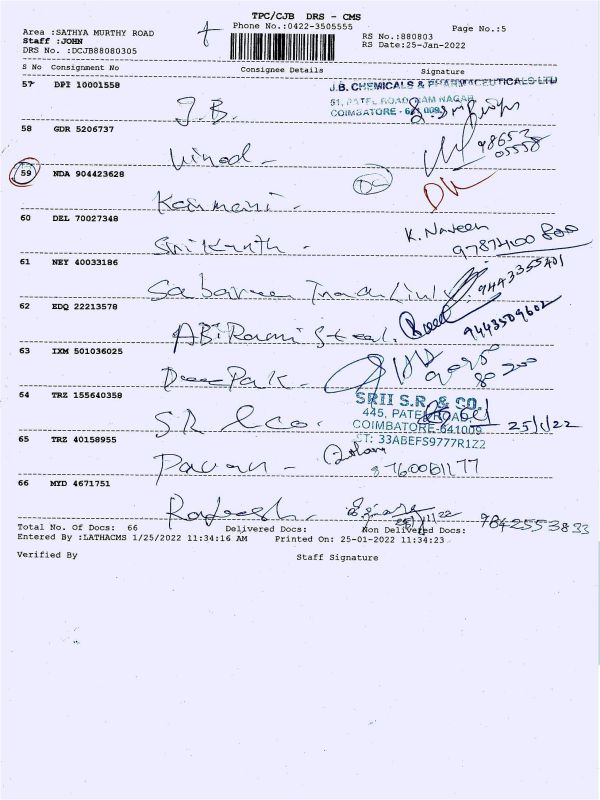 TPC/CJB DRS - CMS
Area :SATHYA MURTHY ROAD
Phone No.:0422-3505555
Page No.:5
Staff :JOHN
RS No.:880803
DRS No. :DCJB88080305
RS Date:25-Jan-2022
S No Consignment No Consignee Details Signature
57 DPI 10001558
J.B.
J.B. CHEMICALS & PHARMACEUTICALS LTD
51, PATEL ROAD, RAM NAGAR
COIMBATORE - 641 009.
58 GDR 5206737
Vinod -
98653
05558
59 NDA 904423628
Kanmani -
60 DEL 70027348
Srikanth -
K. Naveen
61 NEY 40033186
9443355401
62 EDQ 22213578
ABiRami Steel.
9443509602
63 IXM 501036025
DeePak -
64 TRZ 155640358
S.R & Co.
SRII S.R. & CO.
445, PATEL ROAD,
COIMBATORE-641009
ST: 33ABEFS9777R1Z2
25/1/22
65 TRZ 40158955
Pavan -
8760061177
66 MYD 4671751
Rajesh -
9842553833
Total No. Of Docs: 66 Delivered Docs: Non Delivered Docs:
Entered By :LATHACMS 1/25/2022 11:34:16 AM Printed On: 25-01-2022 11:34:23
Verified By Staff Signature